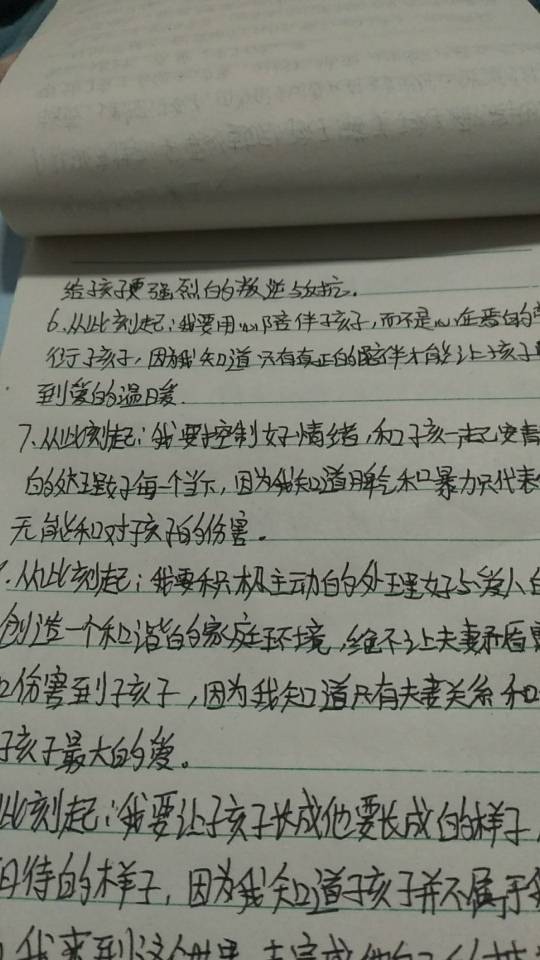 给孩子更强烈的叛逆与对抗。
6、从此刻起:我要用心陪伴孩子,而不是心在焉的
孩子,因为我知道只有真正的陪伴才能让孩子
到爱的温暖。
7、从此刻起:我要控制好情绪,和孩一起
的处理好每一个当下,因为我知道脾气和暴力只代表
无能和对孩子的伤害。
从此刻起:我要积极主动的处理好与爱人
创造一个和谐的家庭环境,绝不让夫妻矛盾
伤害到孩子,因为我知道只有夫妻关系和
孩子最大的爱。
此刻起:我要让孩子长成他要长成的样子,
期待的样子,因为我知道孩子并不属于
我来到这个世界,去完成他自己的